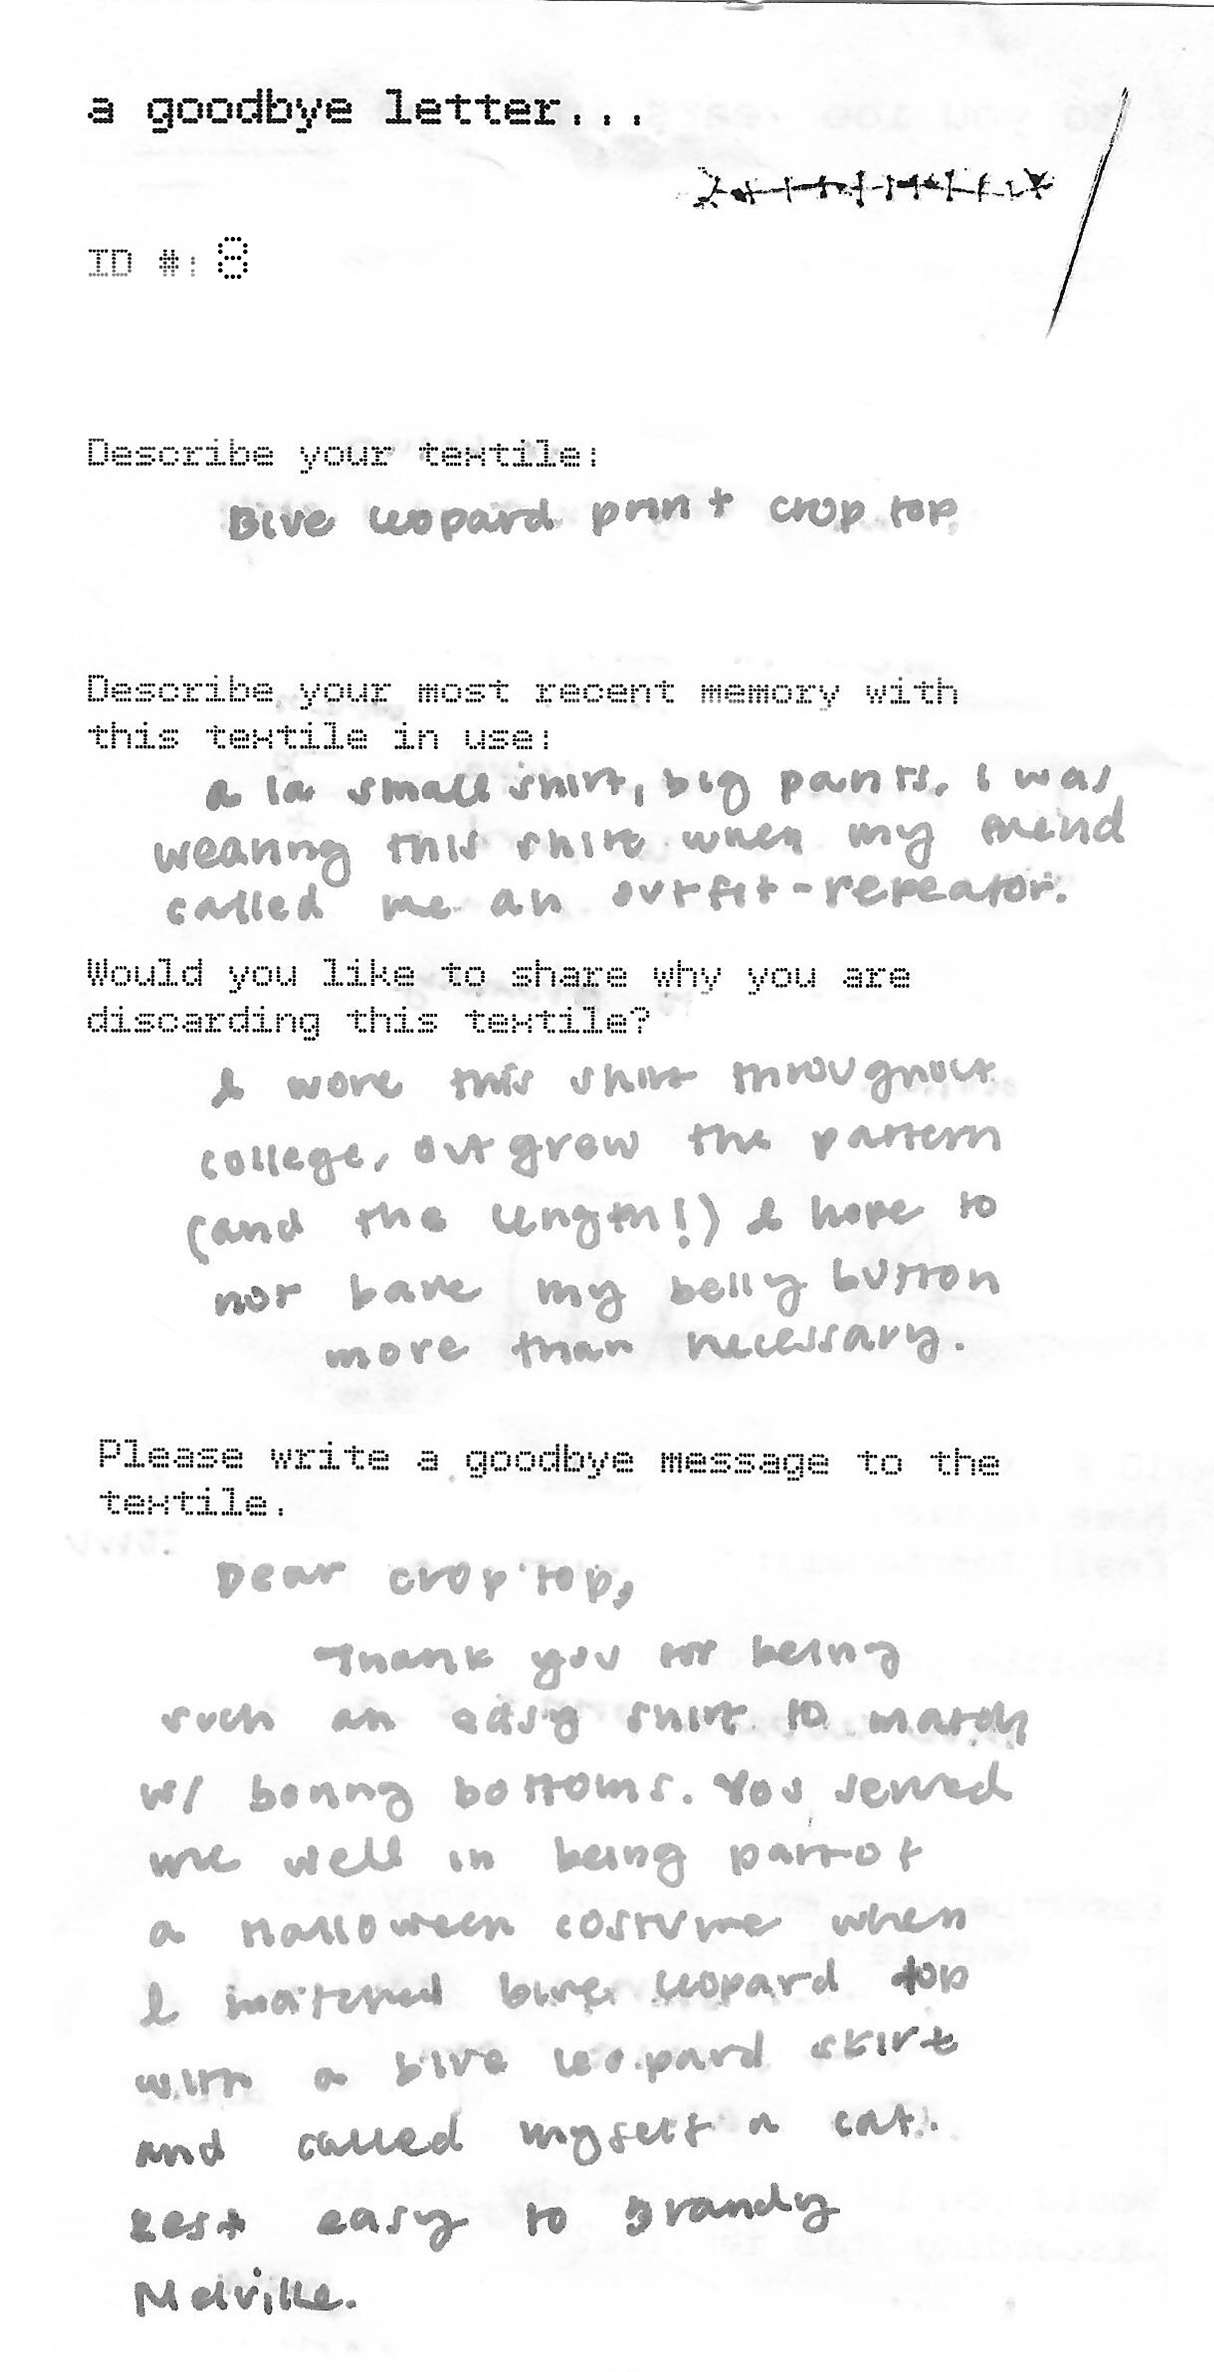 a goodbye letter...
ID #: 8
Describe your textile:
Blue leopard print crop top
Describe your most recent memory with
this textile in use:
a la small shirt, big pants. I was
wearing this shirt when my friend
called me an outfit-repeator.
Would you like to share why you are
discarding this textile?
I wore this shirt throughout
college, outgrew the pattern
(and the length!) I hope to
not bare my belly button
more than necessary.
Please write a goodbye message to the
textile.
Dear crop top,
Thank you for being
such an easy shirt to match
w/ boring bottoms. You served
me well in being part of
a Halloween costume when
I matched blue leopard top
with a blue leopard skirt
and called myself a cat.
Rest easy to Brandy
Melville.